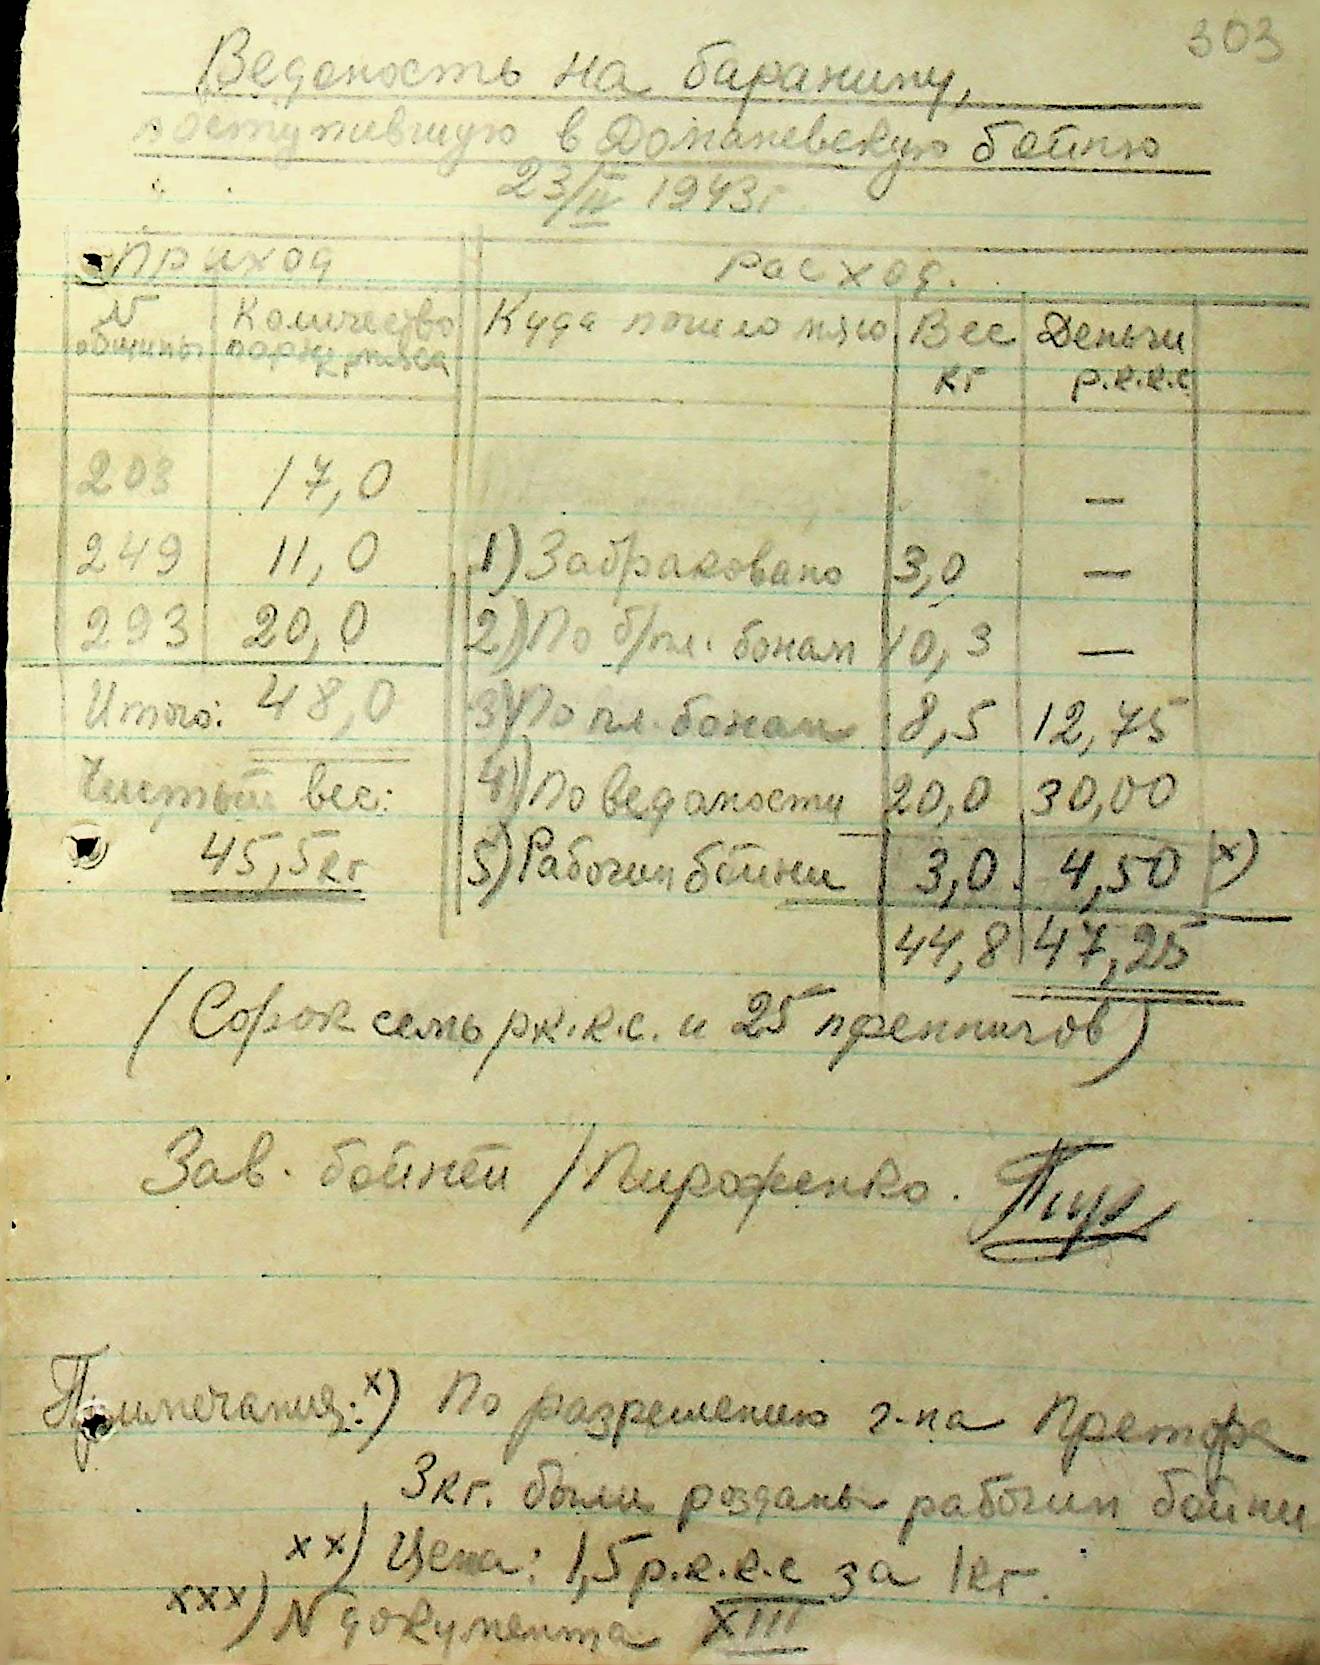 303
Ведомость на баранину,
поступившую в Доманевскую бойню
23/II 1943г.
Приход
Расход.
N общины
Количество парн. мяса кг
Куда пошло мясо
Вес кг
Деньги р.к.к.с
203 17,0 —
249 11,0 1) Забраковано 3,0 —
293 20,0 2) По б/пл. бонам 10,3 —
Итого: 48,0 3) По пл. бонам 8,5 12,75
Чистый вес: 4) По ведомости 20,0 30,00
45,5 кг 5) Рабочим бойни 3,0 4,50 x)
44,8 47,25
(Сорок семь р.к.к.с. и 25 пфеннигов)
Зав. бойней /Пироженко. Пир
Примечания: x) По разрешению г-на Претора
3кг. были розданы рабочим бойни
xx) Цена: 1,5 р.к.к.с за 1кг.
xxx) N документа XIII